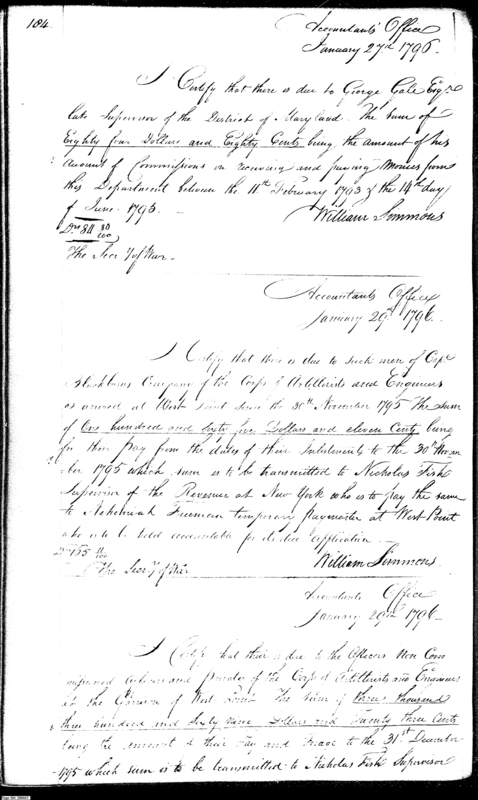 184
Accountants Office
January 27th 1796.
I Certify that there is due to George Gale Esqre
late Supervisor of the District of Maryland. The sum of
Eighty four Dollars and Eighty Cents being the amount of his
Amount of Commissions on receiving and paying Monies from
this Department between the 11th February 1793 & the 14th day
of June 1795.
William Simmons
Drs 84 80/100
The Secry of War
Accountants Office
January 29th 1796.
I Certify that there is due to such men of Capt
Company of the Corps of Artillerists and Engineers
as arrived at West Point since the 30th November 1795 The sum
of One hundred and sixty five Dollars and eleven Cents being
for their pay from the dates of their Inlistments to the 30th Novem
ber 1795 which sum is to be transmitted to Nicholas Fish
Supervisor of the Revenue at New York who is to pay the same
to Nehemiah Freeman temporary paymaster at West Point
who is to be held accountable for its due application.
Drs 165 11/100
William Simmons
The Secry of War
Accountants Office
January 29th 1796.
I Certify that there is due to the Officers Non Com
missioned Officers and privates of the Corps of Artillerists and Engineers
at the Garrison of West Point The sum of three thousand
three hundred and sixty nine Dollars and Twenty three Cents
being the amount of their Pay and to the 31st December
1795 which sum is to be transmitted to Nicholas Fish Supervisor